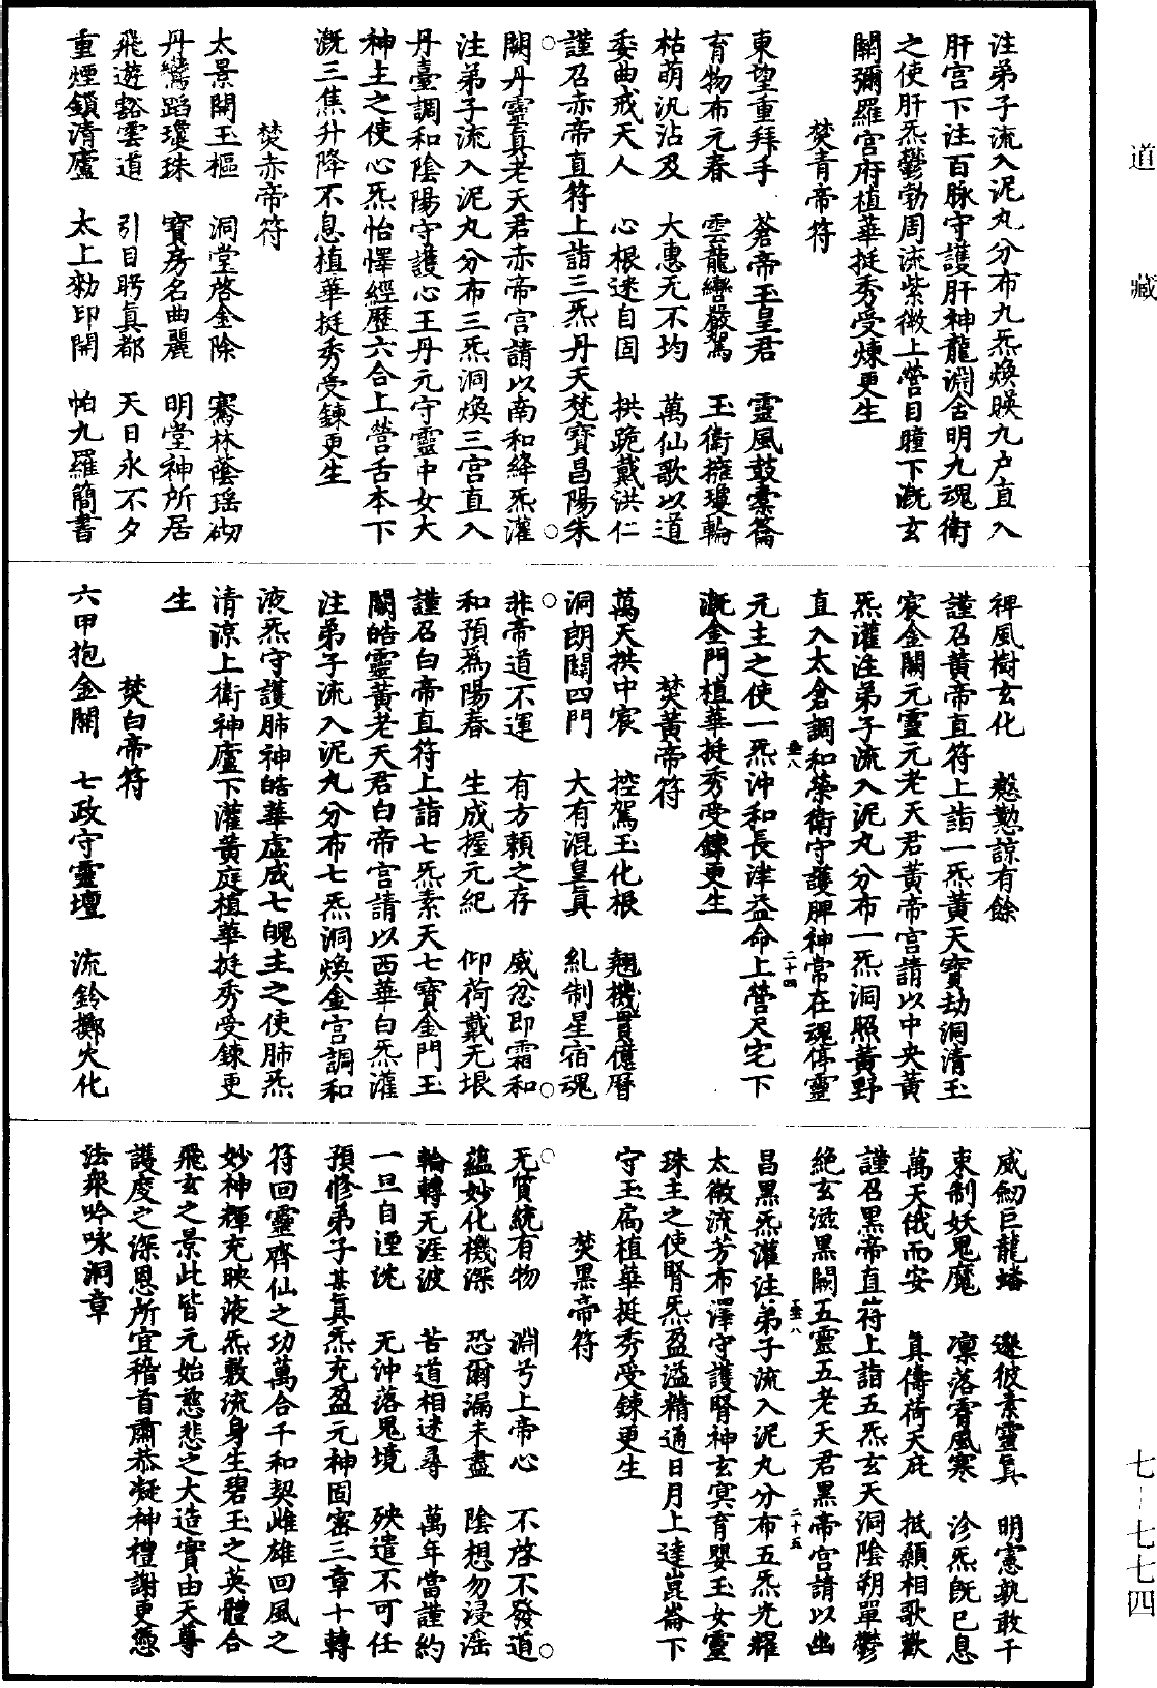 道藏
注弟子流入泥丸分布九炁煥映九户直入
肝宫下注百脉守護肝神龍淵舍明九魂衛
之使肝炁鬱勃周流紫微上營目瞳下溉玄
關彌羅宫府植華挺秀受煉更生
焚青帝符
東望重拜手　蒼帝玉皇君　靈風鼓橐籥
育物布元春　雲龍轡嚴駕　玉衛擁瓊輪
枯萌汎沾及　大惠无不均　萬仙歌以道
委曲戒天人　心根迷自固　拱跪戴洪仁
謹召赤帝直符上詣三炁丹天梵寶昌陽朱
闕丹靈真老天君赤帝宫請以南和絳炁灌
注弟子流入泥丸分布三炁洞煥三宫直入
丹臺調和陰陽守護心王丹元守靈中女大
神主之使心炁怡懌經歷六合上營舌本下
溉三焦升降不息植華挺秀受鍊更生
焚赤帝符
太景開玉樞　洞堂啓金除　騫林蔭瑶砌
丹鸞蹈瓊珠　寶房名曲麗　明堂神所居
飛遊豁雲道　引目眄真都　天日永不夕
重煙鎖清廬　太上勑印開　帕九羅簡書
稗風樹玄化　慇懃諒有餘
謹召黄帝直符上詣一炁黄天寶劫洞清玉
宸金闕元靈元老天君黄帝宫請以中央黄
炁灌注弟子流入泥丸分布一炁洞照黄野
直入太倉調和榮衛守護脾神常在魂停靈
元主之使一炁沖和長津益命上營尺宅下
溉金門植華挺秀受鍊更生
焚黄帝符
萬天拱中宸　控駕玉化根　翹機貫億曆
洞朗闢四門　大有混皇真　糺制星宿魂
非帝道不運　有方賴之存　威忿即霜和
和預爲陽春　生成握元紀　仰荷戴无垠
謹召白帝直符上詣七炁素天七寶金門玉
闕皓靈黄老天君白帝宫請以西華白炁灌
注弟子流入泥丸分布七炁洞煥金宫調和
液炁守護肺神皓華虚成七魄主之使肺炁
清涼上衛神廬下灌黄庭植華挺秀受鍊更
生
焚白帝符
六甲抱金關　七政守靈壇　流鈴擲火化
威劒巨龍蟠　邀彼素靈真　明憲孰敢干
束制妖鬼魔　凛落霄風寒　沴炁既已息
萬天俄而安　真儔荷天庇　抵顙相歌歡
謹召黑帝直符上詣五炁玄天洞陰朔單鬱
絶玄滋黑闕五靈五老天君黑帝宫請以幽
昌黑炁灌注弟子流入泥丸分布五炁光耀
太微流芳布澤守護腎神玄冥育嬰玉女靈
珠主之使腎炁盈溢精通日月上達崑崙下
守玉扃植華挺秀受鍊更生
焚黑帝符
无質統有物　淵兮上帝心　不啓不發道
藴妙化機深　恐爾漏未盡　陰想勿浸滛
輪轉无涯波　苦道相迷尋　萬年當謹約
一旦自湮沈　无沖落鬼境　殃遣不可任
預修弟子某真炁充盈元神固密三章十轉
符回靈齊仙之功萬合千和契雌雄回風之
妙神輝充映液炁敷流身生碧玉之英體合
飛玄之景此皆元始慈悲之大造實由天尊
護度之深恩所宜稽首肅恭凝神禮謝更慿
法衆吟咏洞章
七—七七四